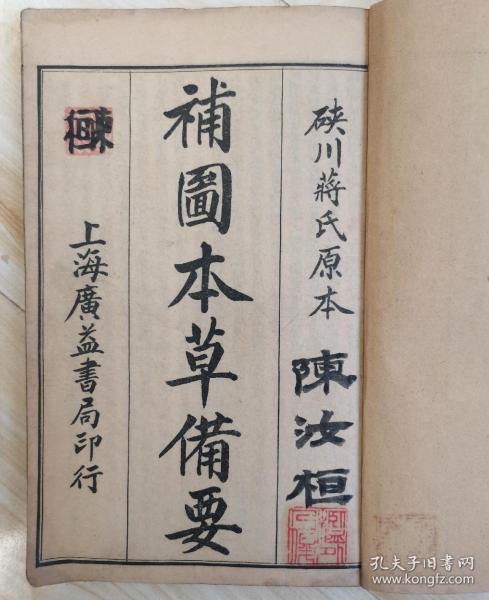 硤川蔣氏原本
陳汝桓
補圖本草備要
上海廣益書局印行
孔夫子旧书网
www.kongfz.com